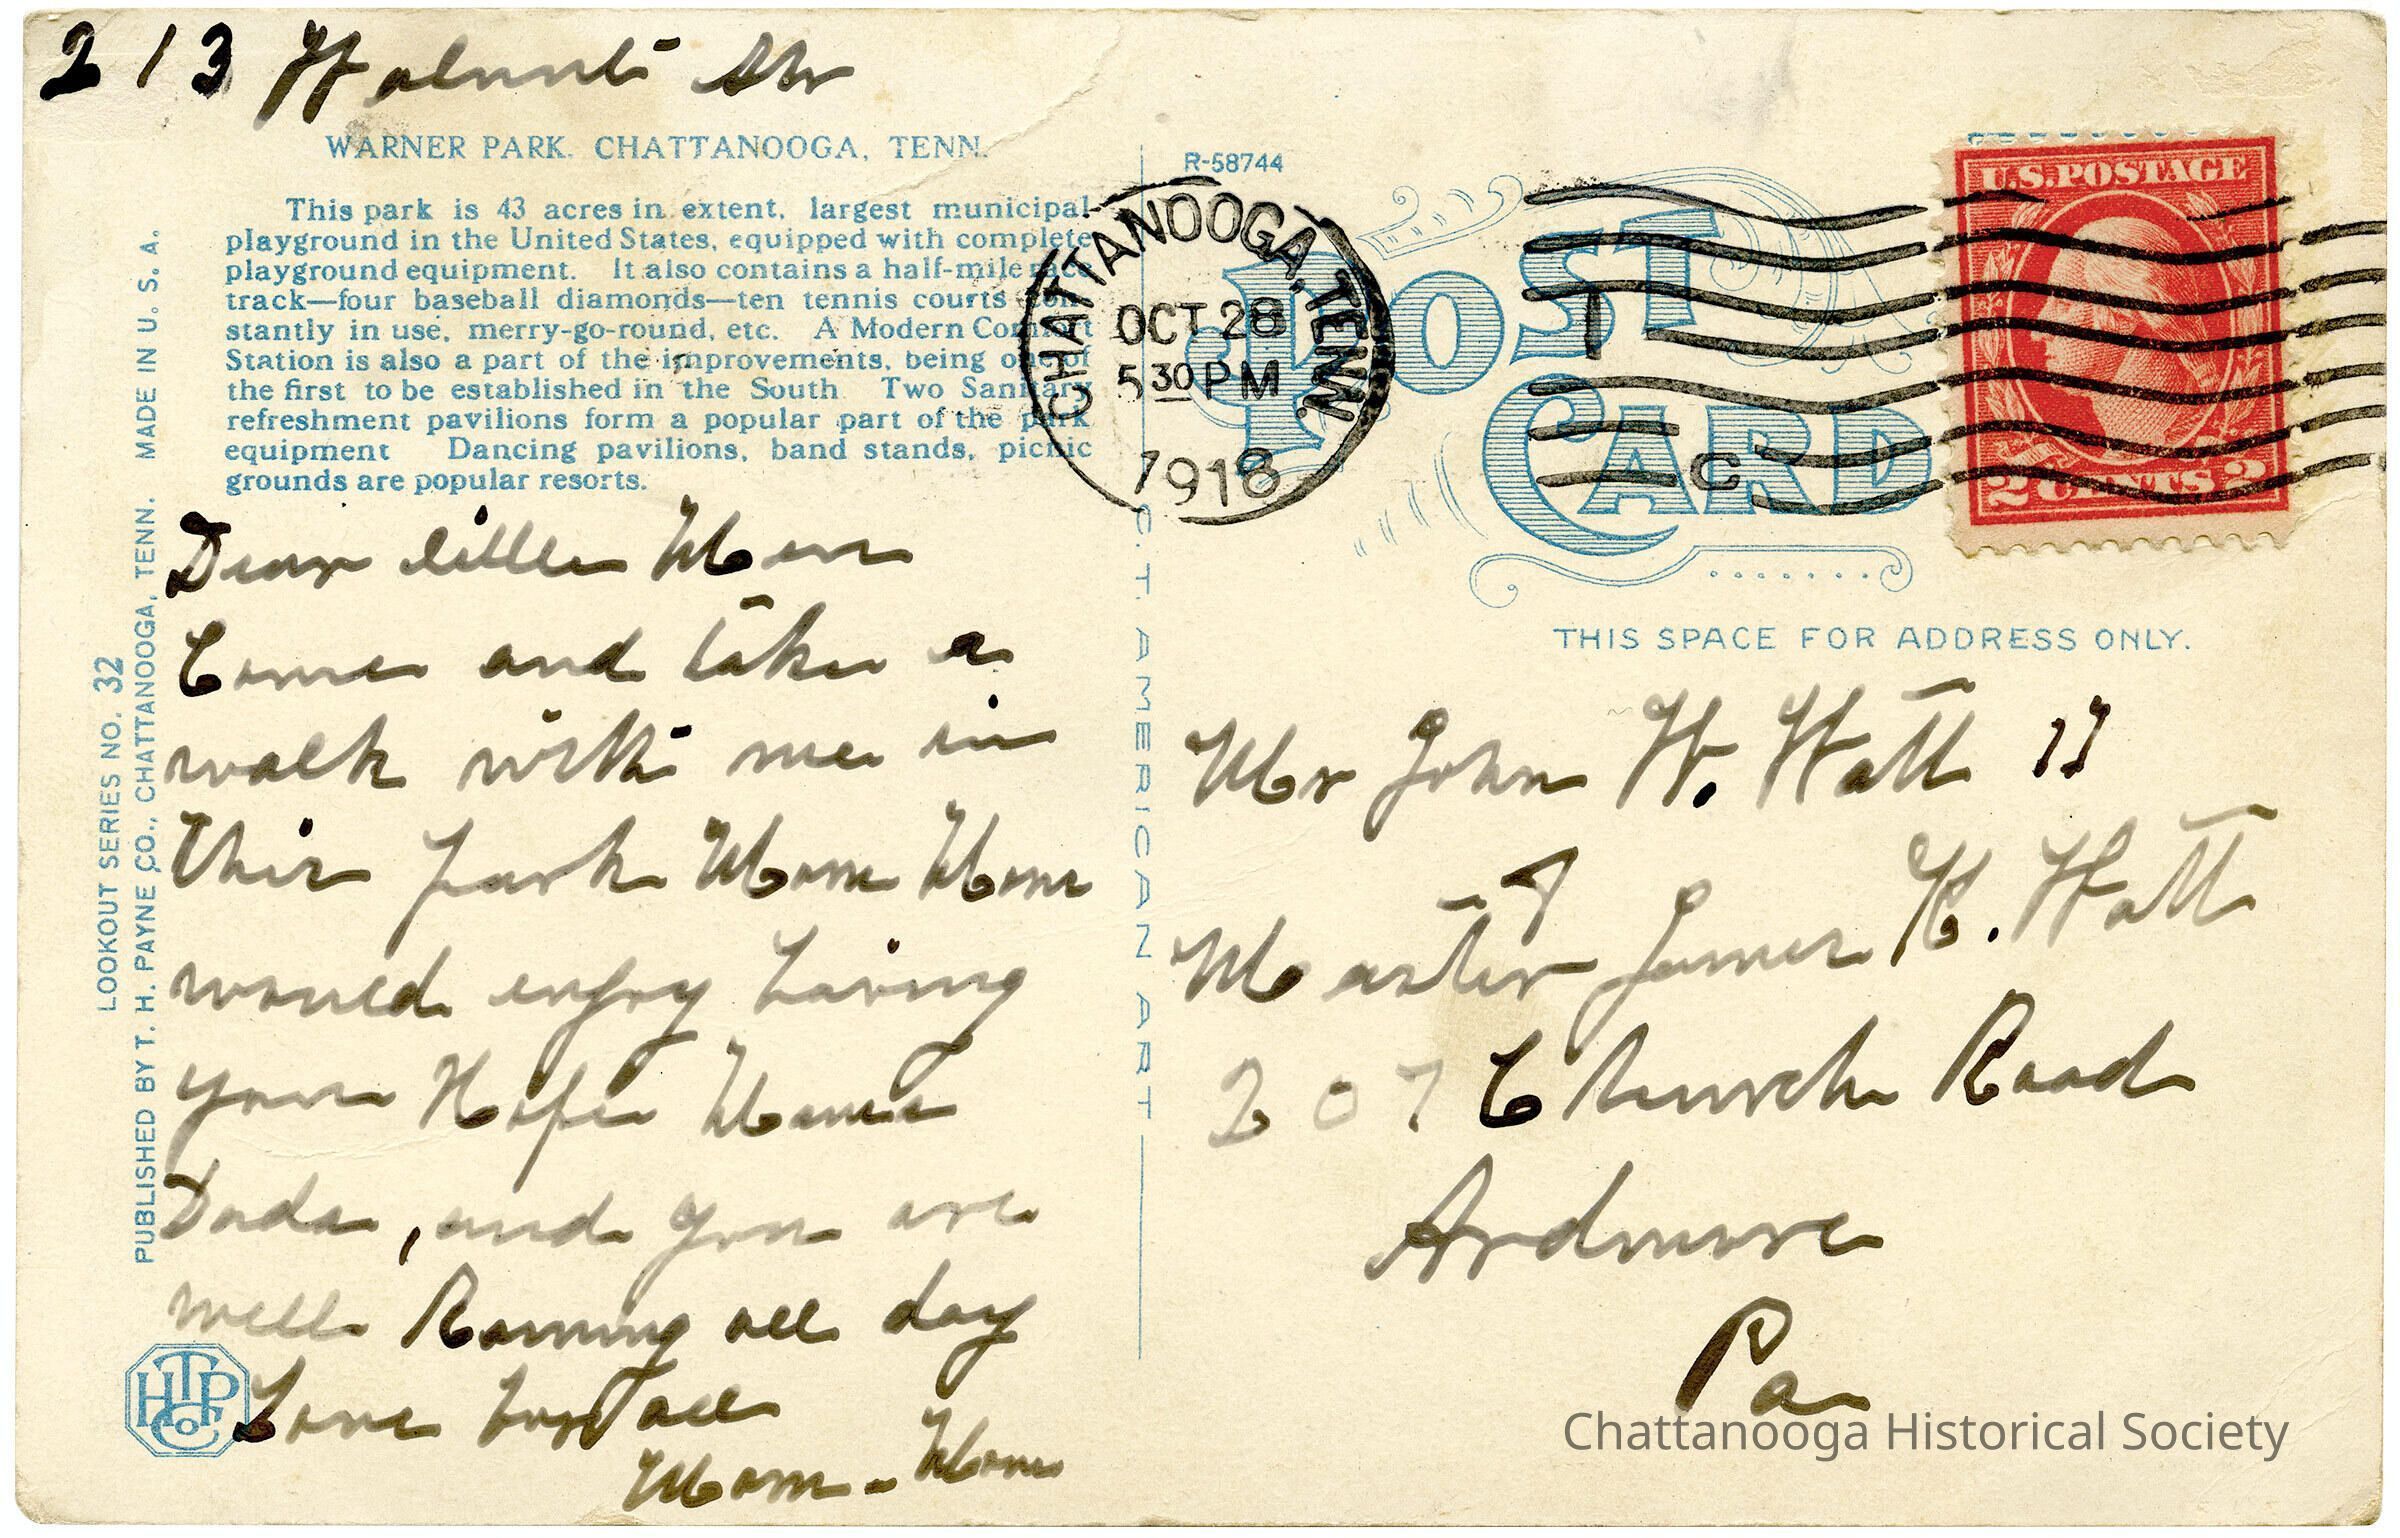 213 Walnut St
WARNER PARK. CHATTANOOGA, TENN.
This park is 43 acres in extent, largest municipal
playground in the United States, equipped with complete
playground equipment. It also contains a half-mile race
track—four baseball diamonds—ten tennis courts con-
stantly in use, merry-go-round, etc. A Modern Comfort
Station is also a part of the improvements, being one of
the first to be established in the South Two Sanitary
refreshment pavilions form a popular part of the park
equipment Dancing pavilions, band stands, picnic
grounds are popular resorts.
Dear little Men
Come and take a
walk with me in
this park Mom Mom
would enjoy having
you Hope Mama
Dada, and you are
well Raining all day
Love for all
Mom-Mom
LOOKOUT SERIES NO. 32
PUBLISHED BY T. H. PAYNE CO., CHATTANOOGA, TENN. MADE IN U. S. A.
THPCo
C. T. AMERICAN ART
R-58744
POST CARD
CHATTANOOGA, TENN.
OCT 28
5 30 PM
1918
1
C
U.S. POSTAGE
2 CENTS 2
THIS SPACE FOR ADDRESS ONLY.
Mr John W. Watt
Master James K. Watt
207 Church Road
Ardmore
Pa
Chattanooga Historical Society